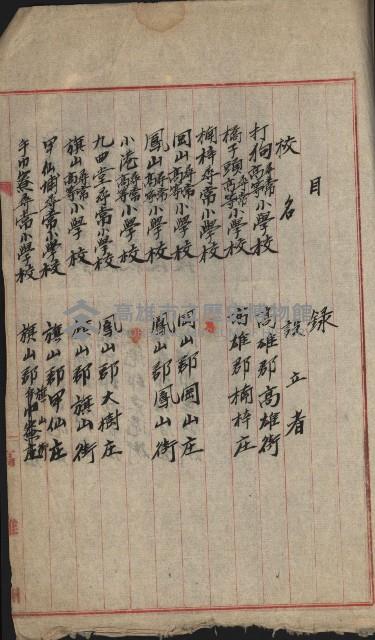 目錄
校名 設立者
打狗尋常高等小學校 高雄郡高雄街
橋子頭尋常高等小學校
楠梓尋常小學校 高雄郡楠梓庄
岡山尋常高等小學校 岡山郡岡山庄
鳳山尋常高等小學校 鳳山郡鳳山街
小港尋常高等小學校
九曲堂尋常小學校 鳳山郡大樹庄
旗山尋常高等小學校 旗山郡旗山街
甲仙埔尋常小學校 旗山郡甲仙庄
尋常小學校 旗山郡
高雄市立歷史博物館
高雄州